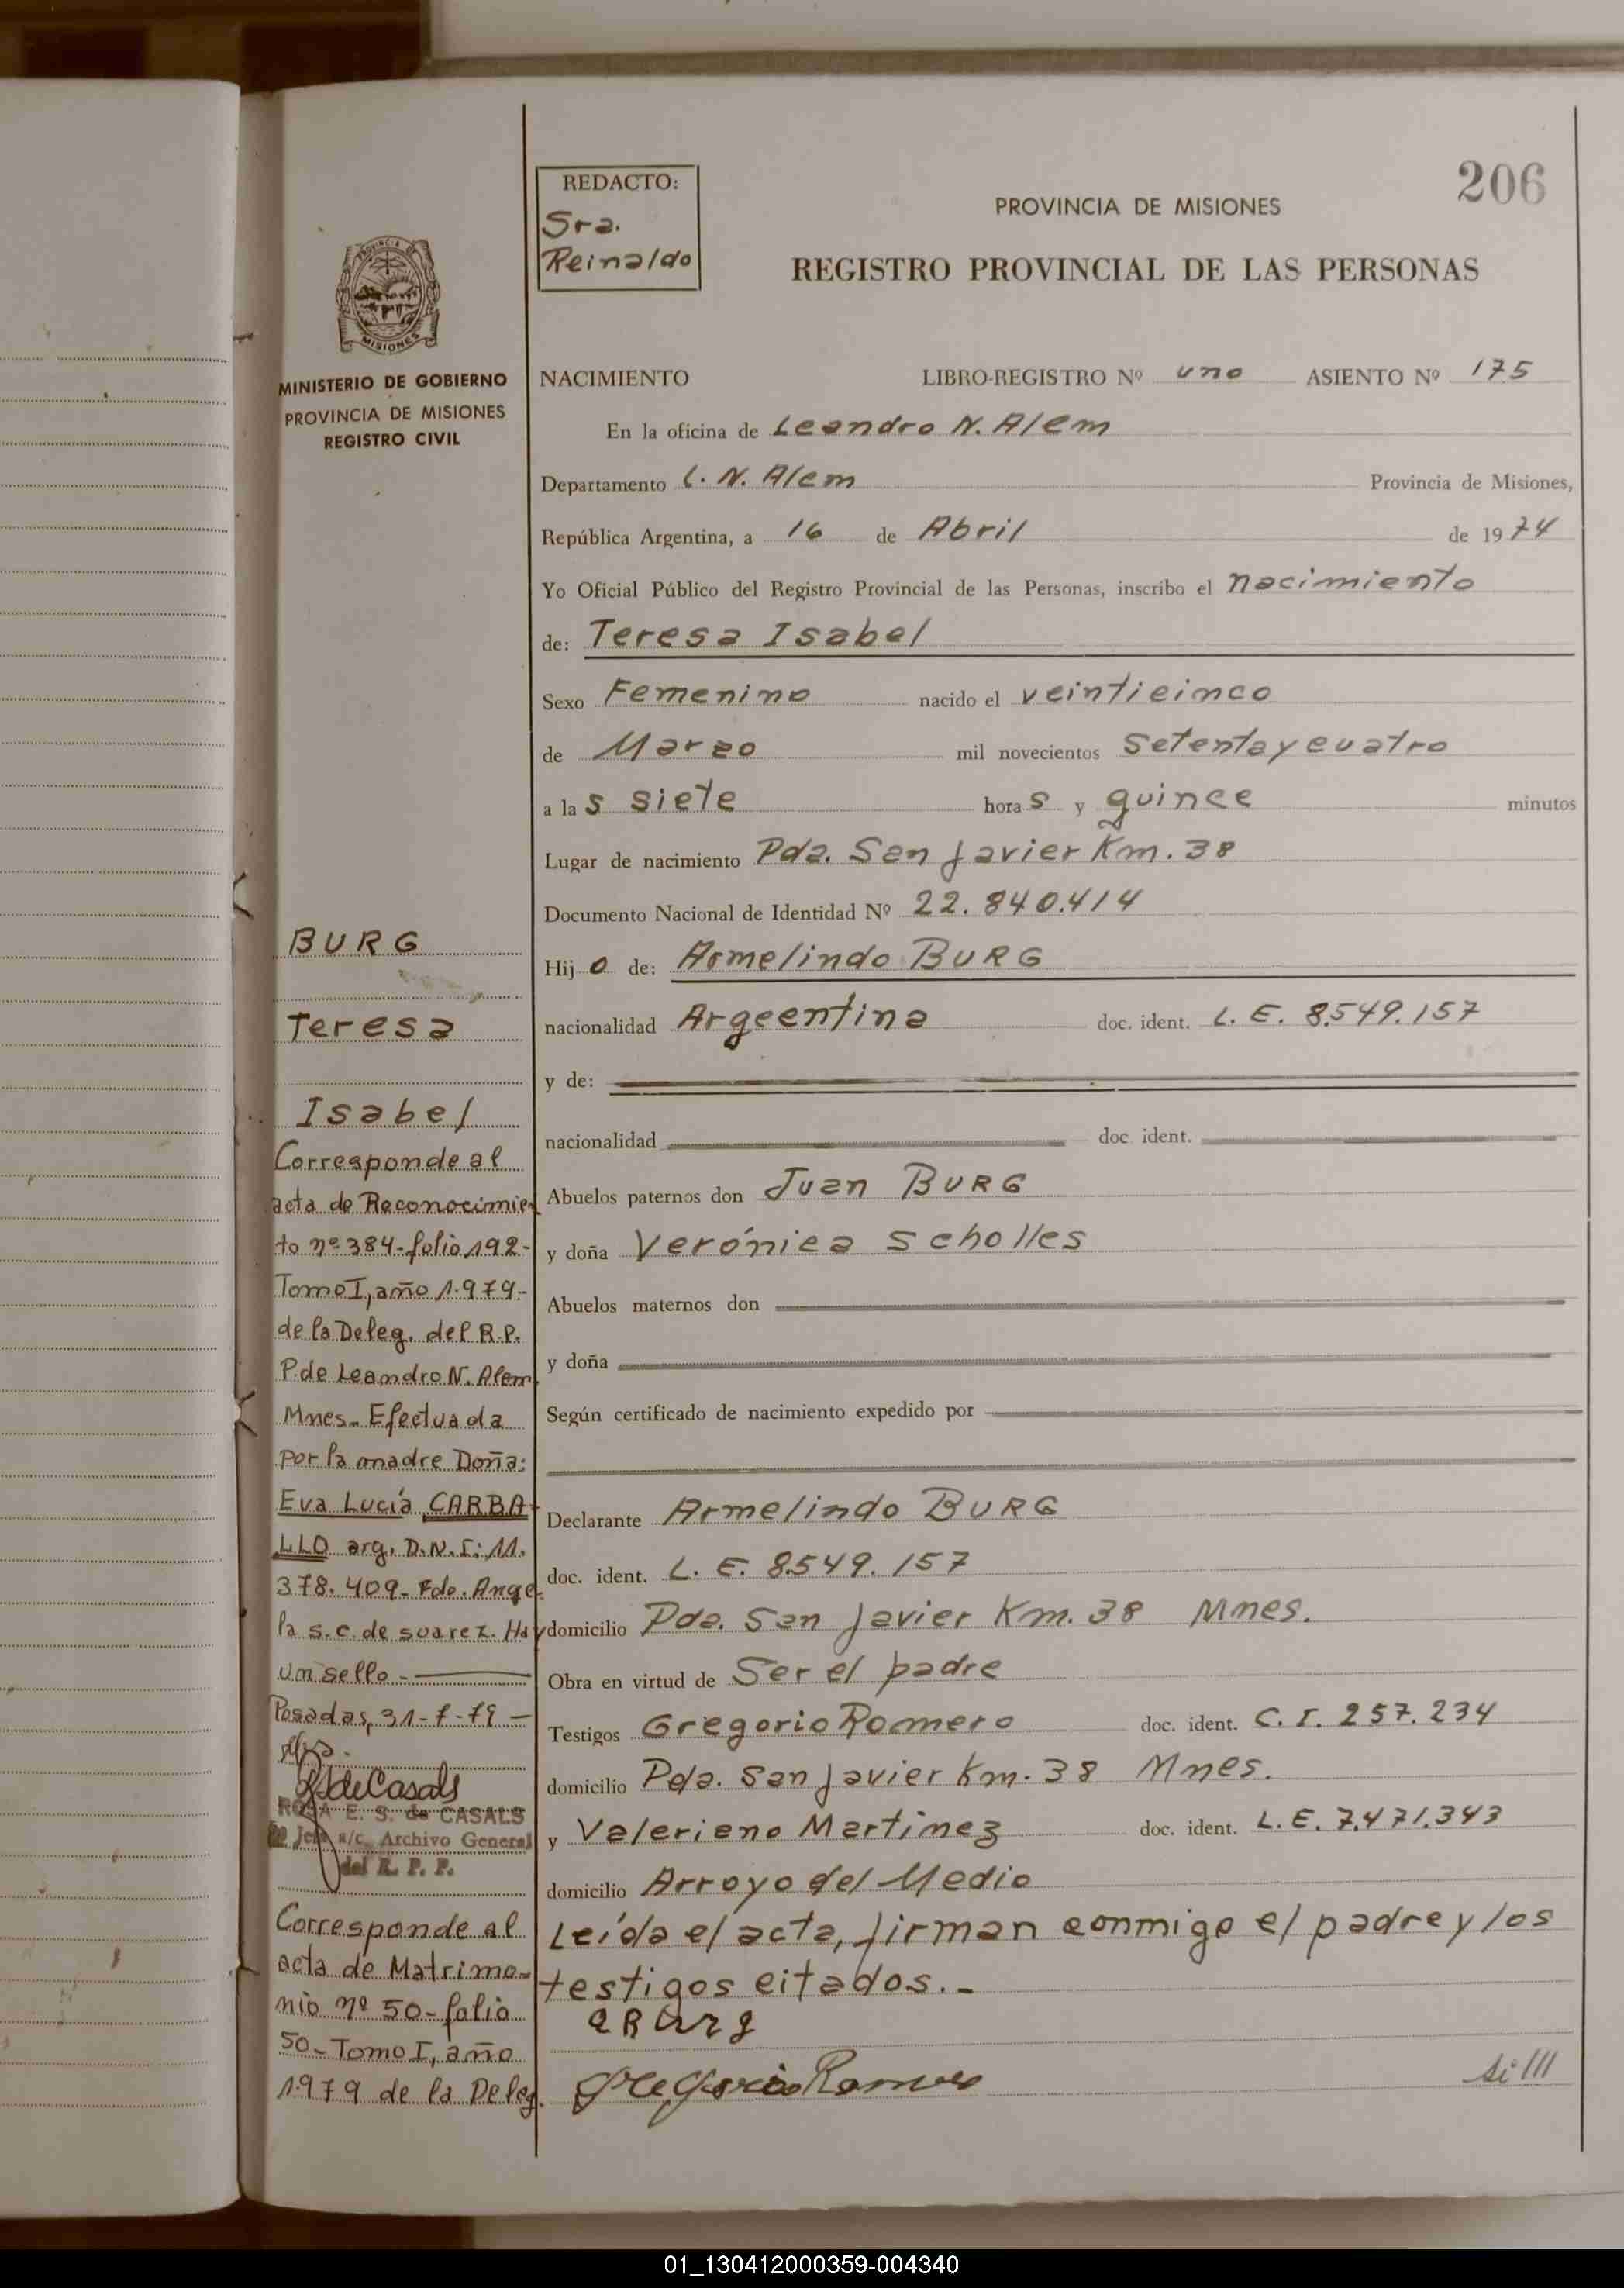 206
REDACTO:
Sra.
Reinaldo
PROVINCIA DE MISIONES
REGISTRO PROVINCIAL DE LAS PERSONAS
PROVINCIA DE
MISIONES
MINISTERIO DE GOBIERNO
PROVINCIA DE MISIONES
REGISTRO CIVIL
NACIMIENTO LIBRO-REGISTRO Nº uno ASIENTO Nº 175
En la oficina de Leandro N. Alem
Departamento L. N. Alem Provincia de Misiones,
República Argentina, a 16 de Abril de 1974
Yo Oficial Público del Registro Provincial de las Personas, inscribo el nacimiento
de: Teresa Isabel
Sexo Femenino nacido el veinticinco
de Marzo mil novecientos setenta y cuatro
a las siete horas y quince minutos
Lugar de nacimiento Pda. San Javier Km. 38
Documento Nacional de Identidad Nº 22.840.414
Hijo de: Armelindo BURG
nacionalidad Argeentina doc. ident. L. E. 8.549.157
y de:
nacionalidad doc. ident.
Abuelos paternos don Juan BURG
y doña Verónica Scholles
Abuelos maternos don
y doña
Según certificado de nacimiento expedido por
Declarante Armelindo BURG
doc. ident. L. E. 8.549.157
domicilio Pda. San Javier Km. 38 Mnes.
Obra en virtud de Ser el padre
Testigos Gregorio Romero doc. ident. C. I. 257.234
domicilio Pda. San Javier Km. 38 Mnes.
y Valeriano Martinez doc. ident. L. E. 7.471.343
domicilio Arroyo del Medio
Leída el acta, firman conmigo el padre y los
testigos citados.-
a Burg
Gregorio Romero
BURG
Teresa
Isabel
Corresponde al
acta de Reconocimien
to nº 384-folio 192-
Tomo I, año 1.979-
de la Deleg. del R.P.
P. de Leandro N. Alem
Mnes- Efectuada
por la madre Doña:
Eva Lucía CARBA-
LLO arg. D.N.I: 11.
378.409- Fdo. Ange-
la S.C. de Suarez. Hay
un sello-
Posadas, 31-7-79-
R de Casals
ROSA E. S. de CASALS
Jefe a/c. Archivo General
del R. P. P.
Corresponde al
acta de Matrimo-
nio nº 50-folio
50-Tomo I, año
1.979 de la Deleg.
01_130412000359-004340